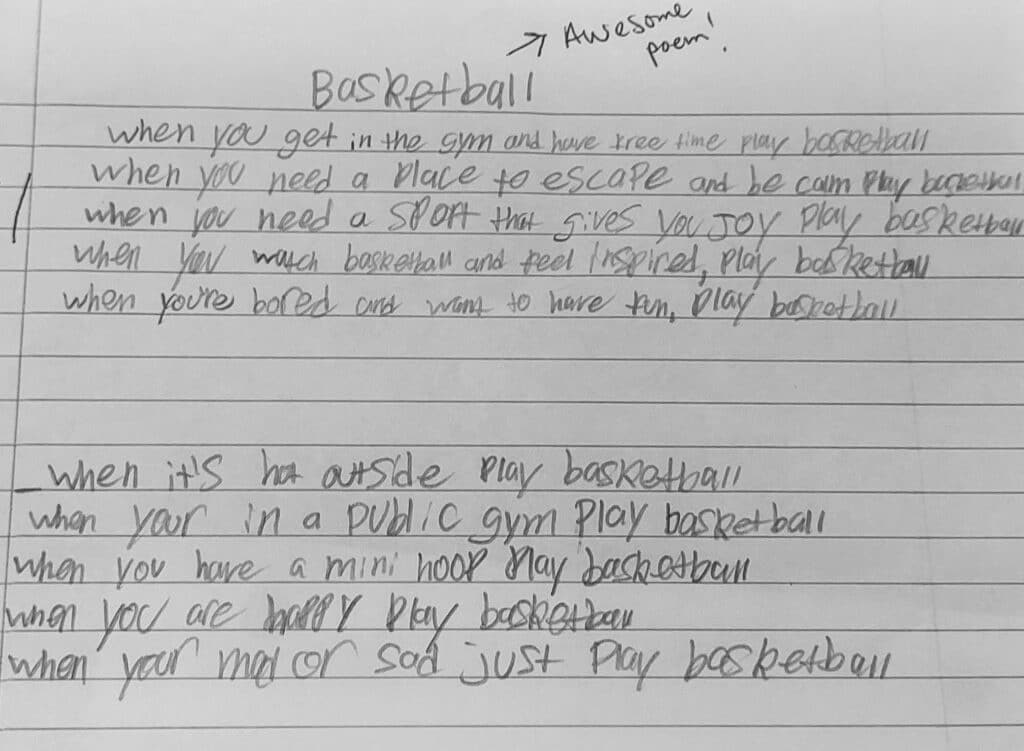 Awesome
poem!
Basketball
when you get in the gym and have free time play basketball
when you need a place to escape and be calm play basketball
when you need a sport that gives you joy play basketball
when you watch basketball and feel inspired, play basketball
when you're bored and want to have fun, play basketball
when it's hot outside play basketball
when your in a public gym play basketball
when you have a mini hoop play basketball
when you are happy play basketball
when your mad or sad just play basketball